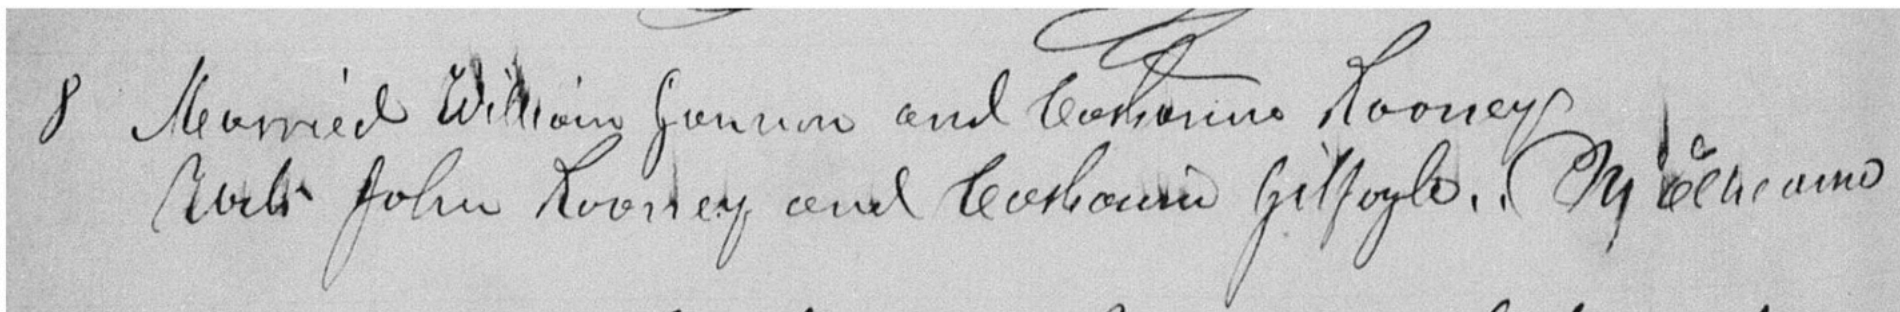 8 Married William Gannon and Catharine Rooney
John Rooney and Catharine Gilfoyle.